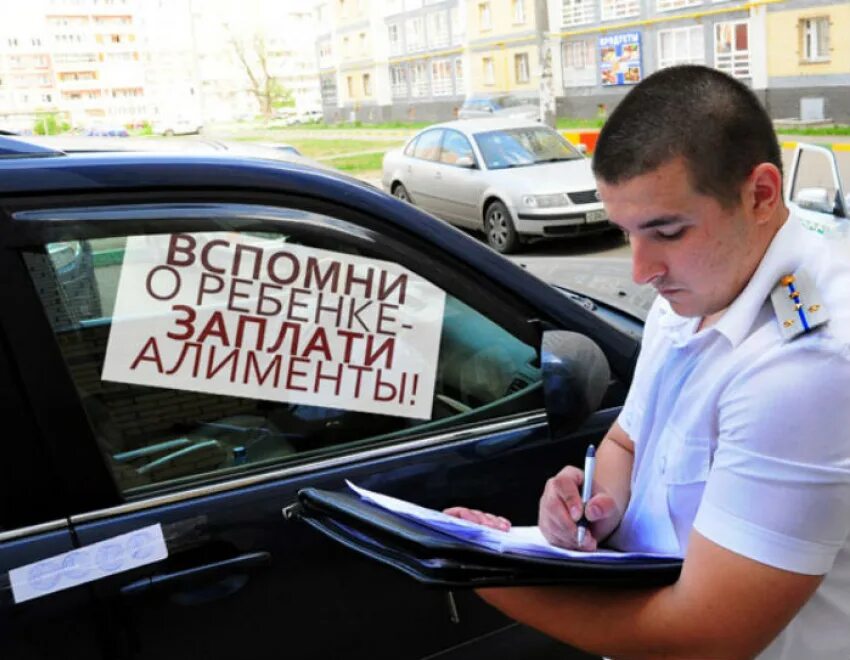 ПРОДУКТЫ
ВСПОМНИ
О РЕБЕНКЕ-
ЗАПЛАТИ
АЛИМЕНТЫ!